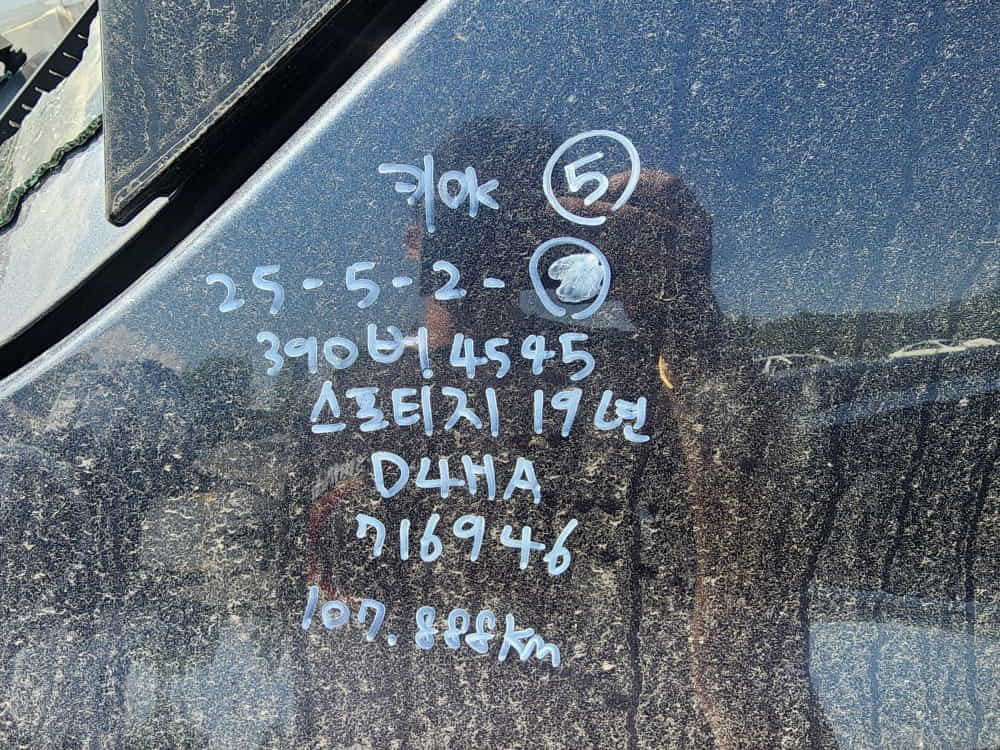 키OK ⑤
25-5-2-
390버! 4545
스포티지 19년
D4HA
716946
107.888km